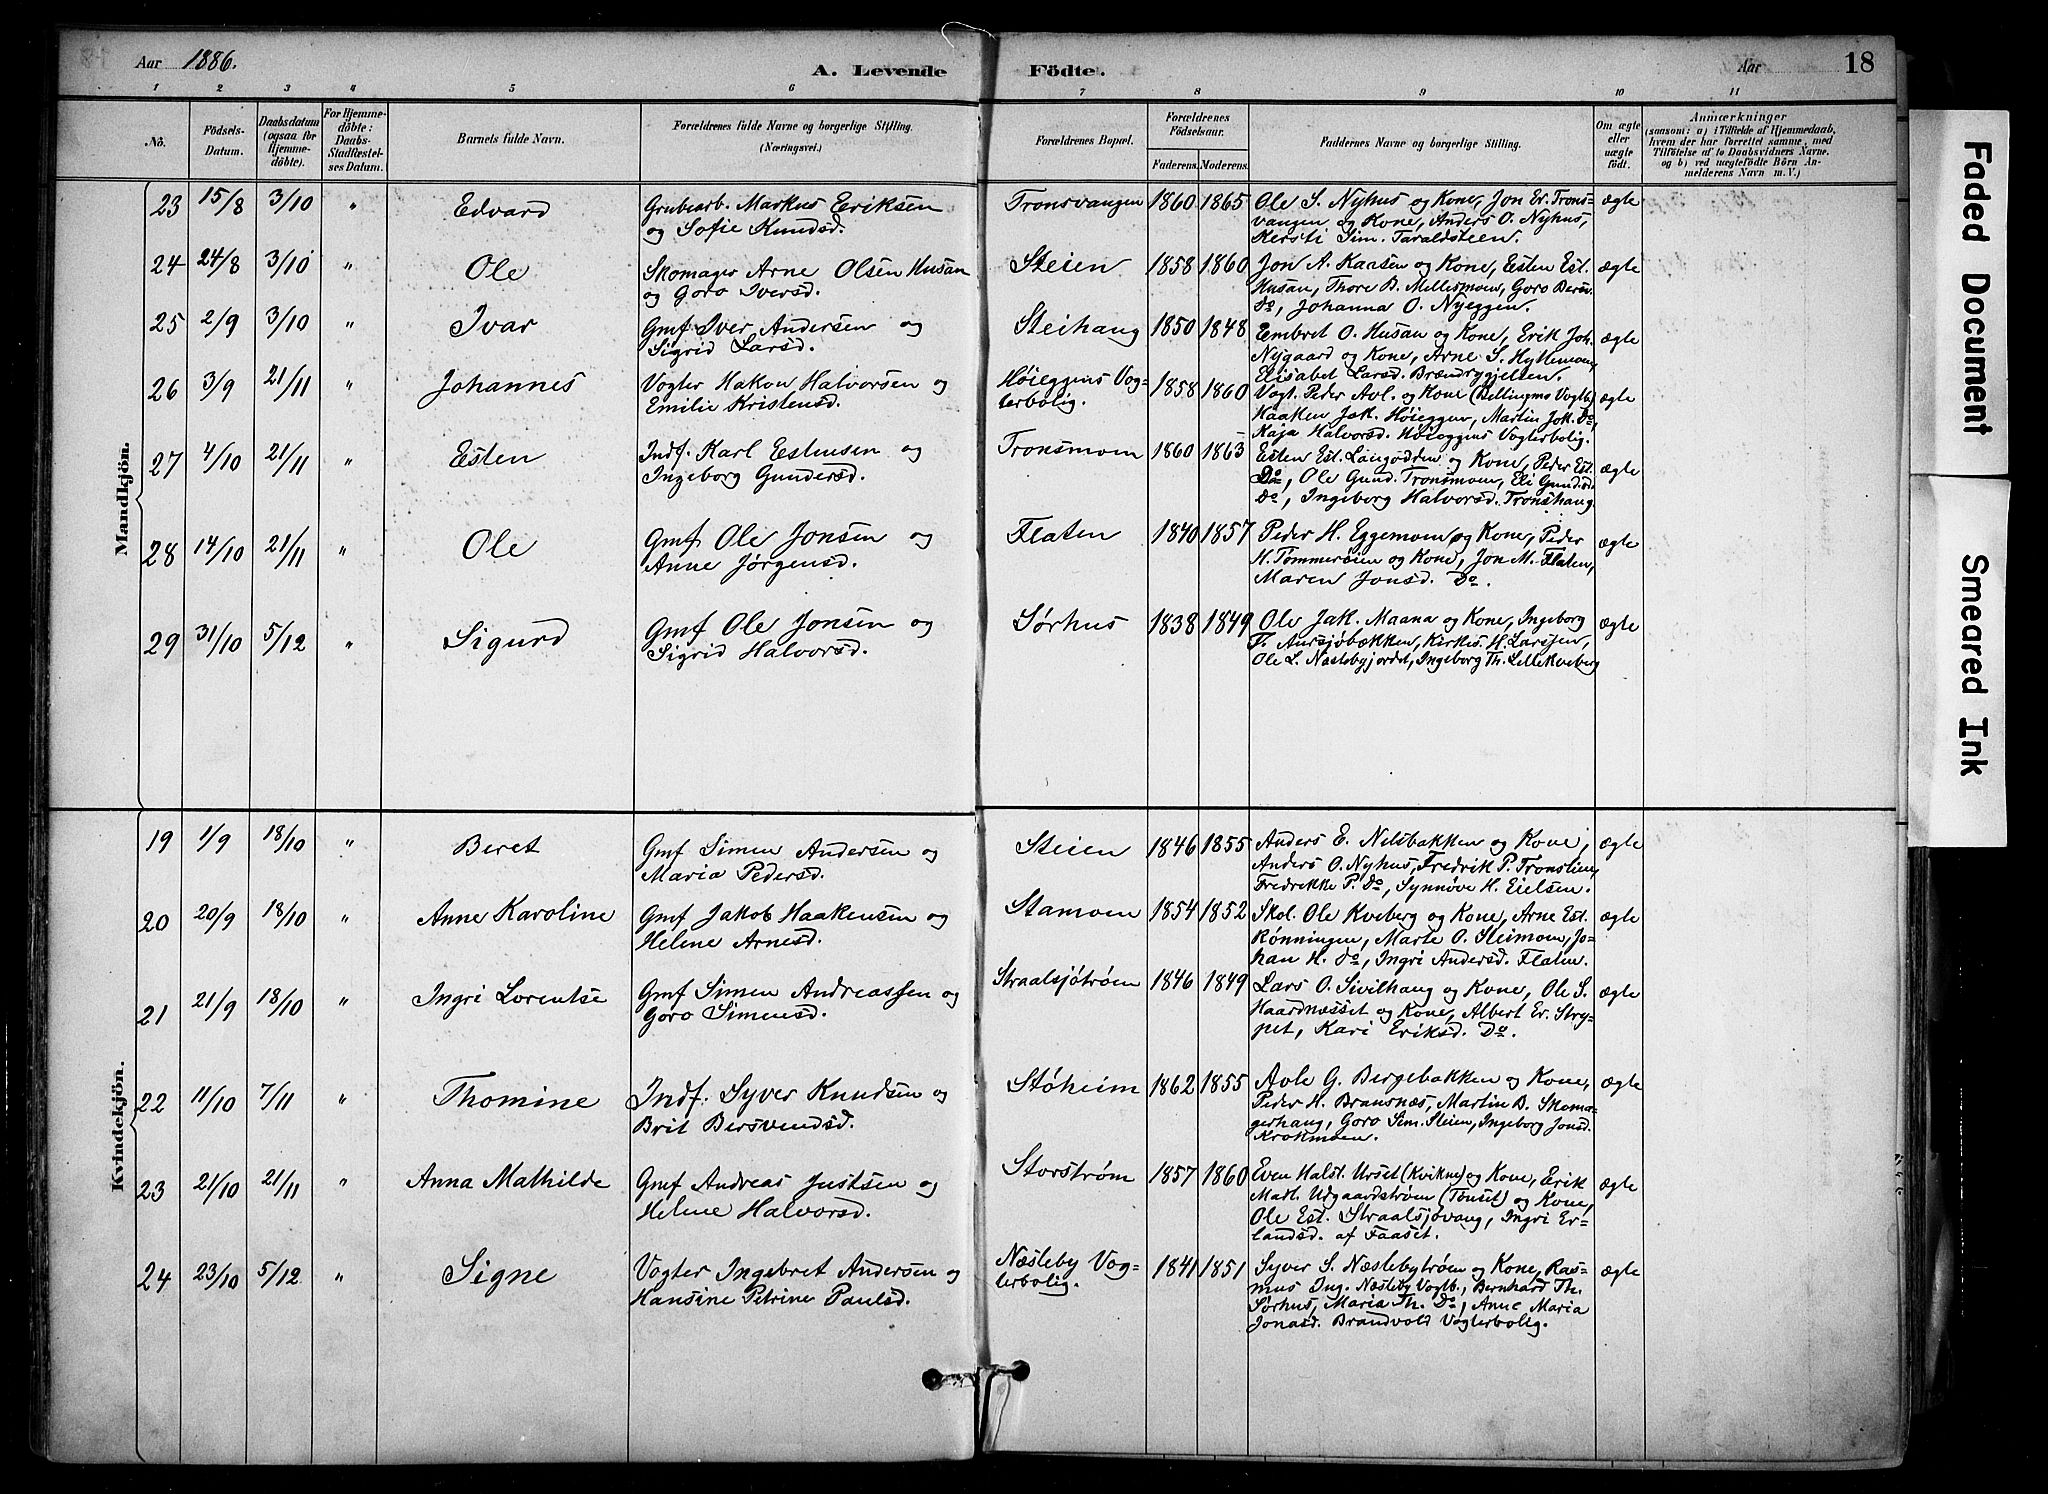 Aar 1886.
A. Levende Födte.
Aar
18
1 2 3 4 5 6 7 8 9 10 11
No.
Födsels-
Datum.
Daabsdatum
(ogsaa for
Hjemme-
döbte).
For Hjemme-
döbte:
Daabs-
Stadfæstel-
ses Datum.
Barnets fulde Navn.
Forældrenes fulde Navne og borgerlige Stilling.
(Næringsvei.)
Forældrenes Bopæl.
Forældrenes
Födselsaar.
Faderens. Moderens.
Faddernes Navne og borgerlige Stilling.
Om ægte
eller
uægte
födt.
Anmærkninger
(saasom: a) i Tilfælde af Hjemmedaab,
hvem der har forrettet samme, med
Tilföielse af to Daabsvidners Navne,
og b) ved uægtefödte Börn An-
melderens Navn m. V.)
Mandkjön.
23 15/8 3/10 " Edvard Grubearb. Markus Eriksen Tronsvangen 1860 1865 Ole S. Nyhus og Kone, Jon Er. Trons- ægte
og Sofie Knudsd. vangen og Kone, Anders O. Nyhus,
Kersti Sim. Taraldsteen.
24 24/8 3/10 " Ole Skomager Arne Olsen Husan Steien 1858 1860 Jon A. Kaasen og Kone, Esten Est. ægte
og Goro Iversd. Husan, Thore B. Mellesmoen, Goro Bersv.
Do, Johanna O. Nyeggen.
25 2/9 3/10 " Ivar Gmf Iver Andersen og Steihaug 1850 1848 Embret O. Husan og Kone, Erik Joh. ægte
Sigrid Larsd. Nygaard og Kone, Arne S. Hyttemoen,
Elisabet Larsd. Brændrygjelten.
26 3/9 21/11 " Johannes Vogter Hakon Halvorsen og Høieggens Vog- 1858 1860 Vogt. Peder Avl. og Kone (Bellingmo Vogtb.) ægte
Emilie Kristensd. terbolig. Haaken Jak. Høieggen, Martin Jak. Do,
Kaja Halvorsd. Høieggens Vogterbolig.
27 4/10 21/11 " Esten Indf. Karl Estensen og Tronsmoen 1860 1863 Esten Est. Langodden og Kone, Peder Est. ægte
Ingeborg Gundersd. Do, Ole Gund. Tronsmoen, Eli Gund.sd.
Do, Ingeborg Halvorsd. Tronshaug.
28 14/10 21/11 " Ole Gmf Ole Jonsen og Flaten 1840 1857 Peder H. Eggemoen og Kone, Peder ægte
Anne Jørgensd. H. Tømmerøien og Kone, Jon M. Flaten,
Maren Jonsd. Do.
29 31/10 5/12 " Sigurd Gmf Ole Jonsen og Sørhus 1838 1849 Ole Jak. Maana og Kone, Ingeborg ægte
Sigrid Halvorsd. T. Aursjøbækken, Kirkes. H. Larsen,
Ole L. Næslebyjordet, Ingeborg Th. Lille Kveberg
Kvindekjön.
19 1/9 18/10 " Beret Gmf Simen Andersen og Steien 1846 1855 Anders E. Nilsbakken og Kone, ægte
Maria Pedersd. Anders O. Nyhus, Fredrik P. Tronslien,
Fredrikke P. Do, Synnøve H. Eielsen.
20 20/9 18/10 " Anne Karoline Gmf Jakob Haakensen og Stamoen 1854 1852 Skol. Ole Kveberg og Kone, Arne Est. ægte
Helene Arnesd. Rønningen, Marte O. Steimoen, Jo-
han H. do, Ingri Andersd. Flaten.
21 21/9 18/10 " Ingri Lorentse Gmf Simen Andreassen og Straalsjøtrøen 1846 1849 Lars O. Sivilhaug og Kone, Ole S. ægte
Goro Simensd. Haardnæsset og Kone, Albert Er. Stry-
pet, Kari Eriksd. Do.
22 11/10 7/11 " Thomine Indf. Syver Knudsen og Støheim 1862 1855 Avle G. Bergebakken og Kone, ægte
Brit Bersvendsd. Peder H. Bransnæs, Martin B. Skoma-
gerhaug, Goro Sim. Steien, Ingeborg Jonsd.
Krokmoen.
23 21/10 21/11 " Anna Mathilde Gmf Andreas Justsen og Storstrøm 1857 1860 Even Halst. Urset (Kvikne) og Kone, Erik ægte
Helene Halvorsd. Mart. Udgaardstrøen (Tønset) og Kone,
Ole Est. Straalsjøvang, Ingri Er-
landsd. af Faaset.
24 23/10 5/12 " Signe Vogter Ingebret Andersen og Næsleby Vog- 1841 1851 Syver S. Næslebytrøen og Kone, Ras- ægte
Hansine Petrine Paulsd. terbolig. mus Ing. Næsleby Vogtb., Bernhard Th.
Sørhus, Maria Th. Do, Anne Maria
Jonasd. Brandvold Vogterbolig.
Faded Document
Smeared Ink